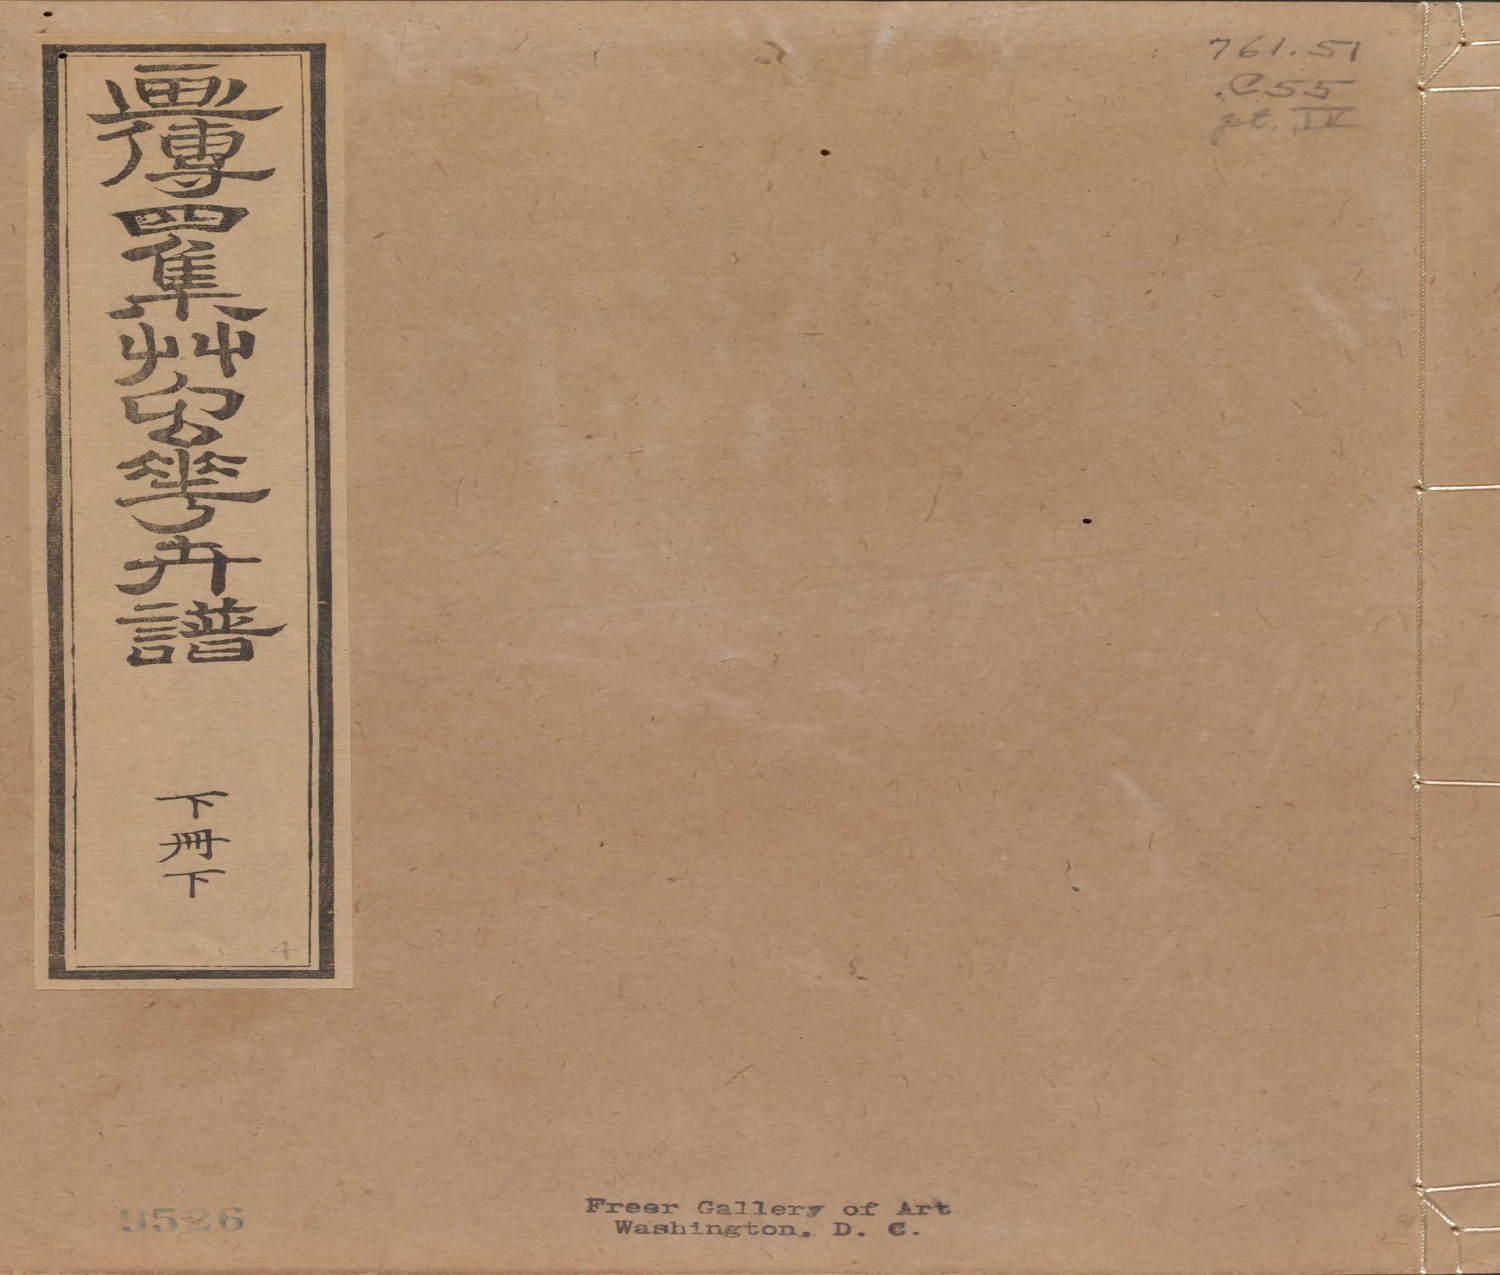 画傳四集艸蟲華卉譜
下冊下
4
761.51
.C55
pt. IV
9526
Freer Gallery of Art
Washington, D. C.